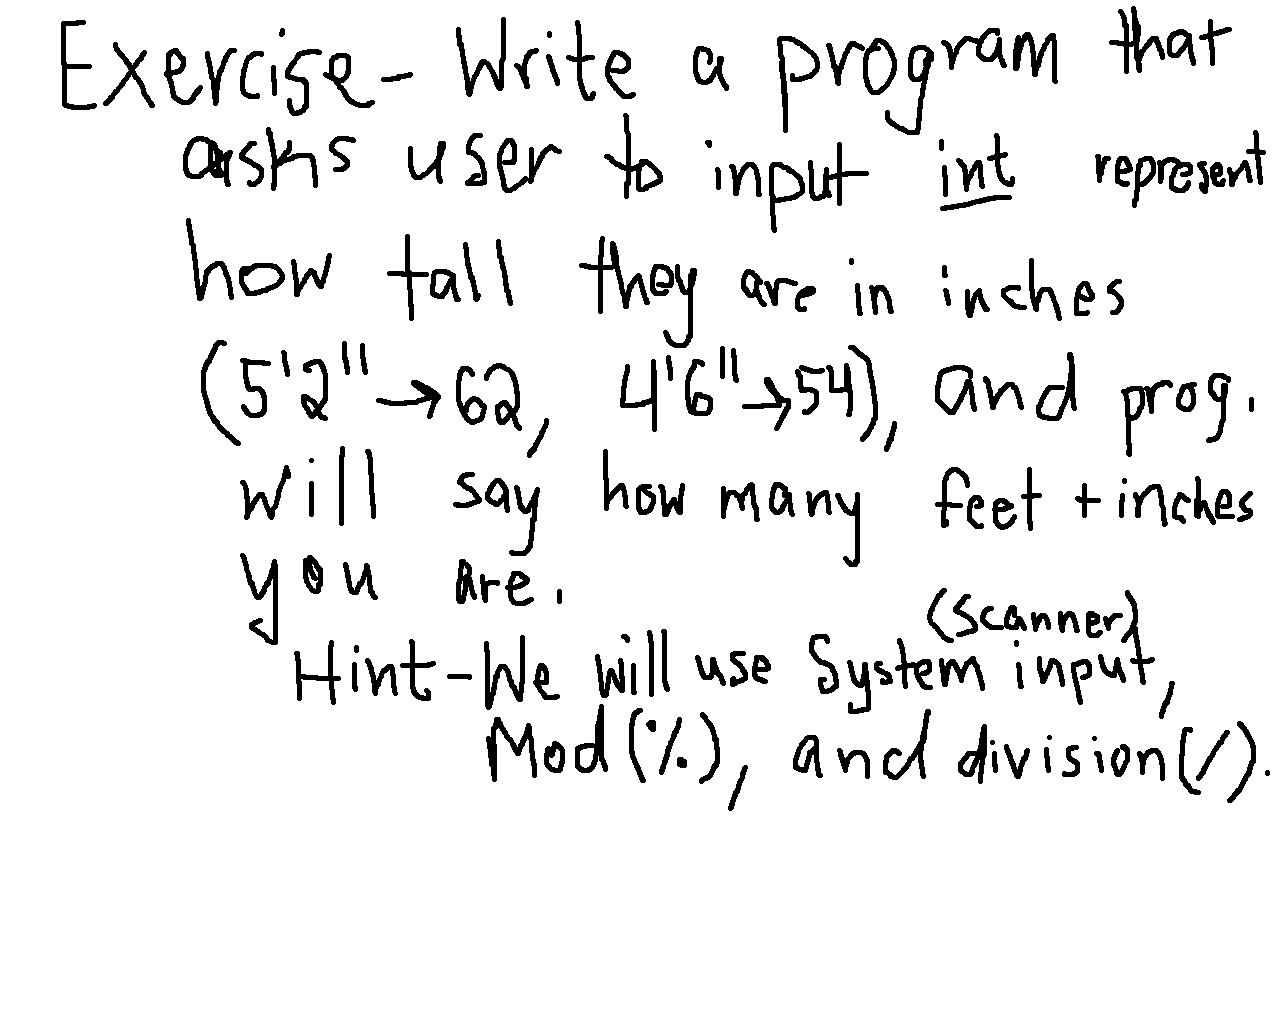 Exercise- Write a program that
asks user to input int represent
how tall they are in inches
(5'2"→62, 4'6"→54), and prog.
will say how many feet + inches
you are.
(scanner)
Hint-We will use System input,
Mod(%), and division(/).